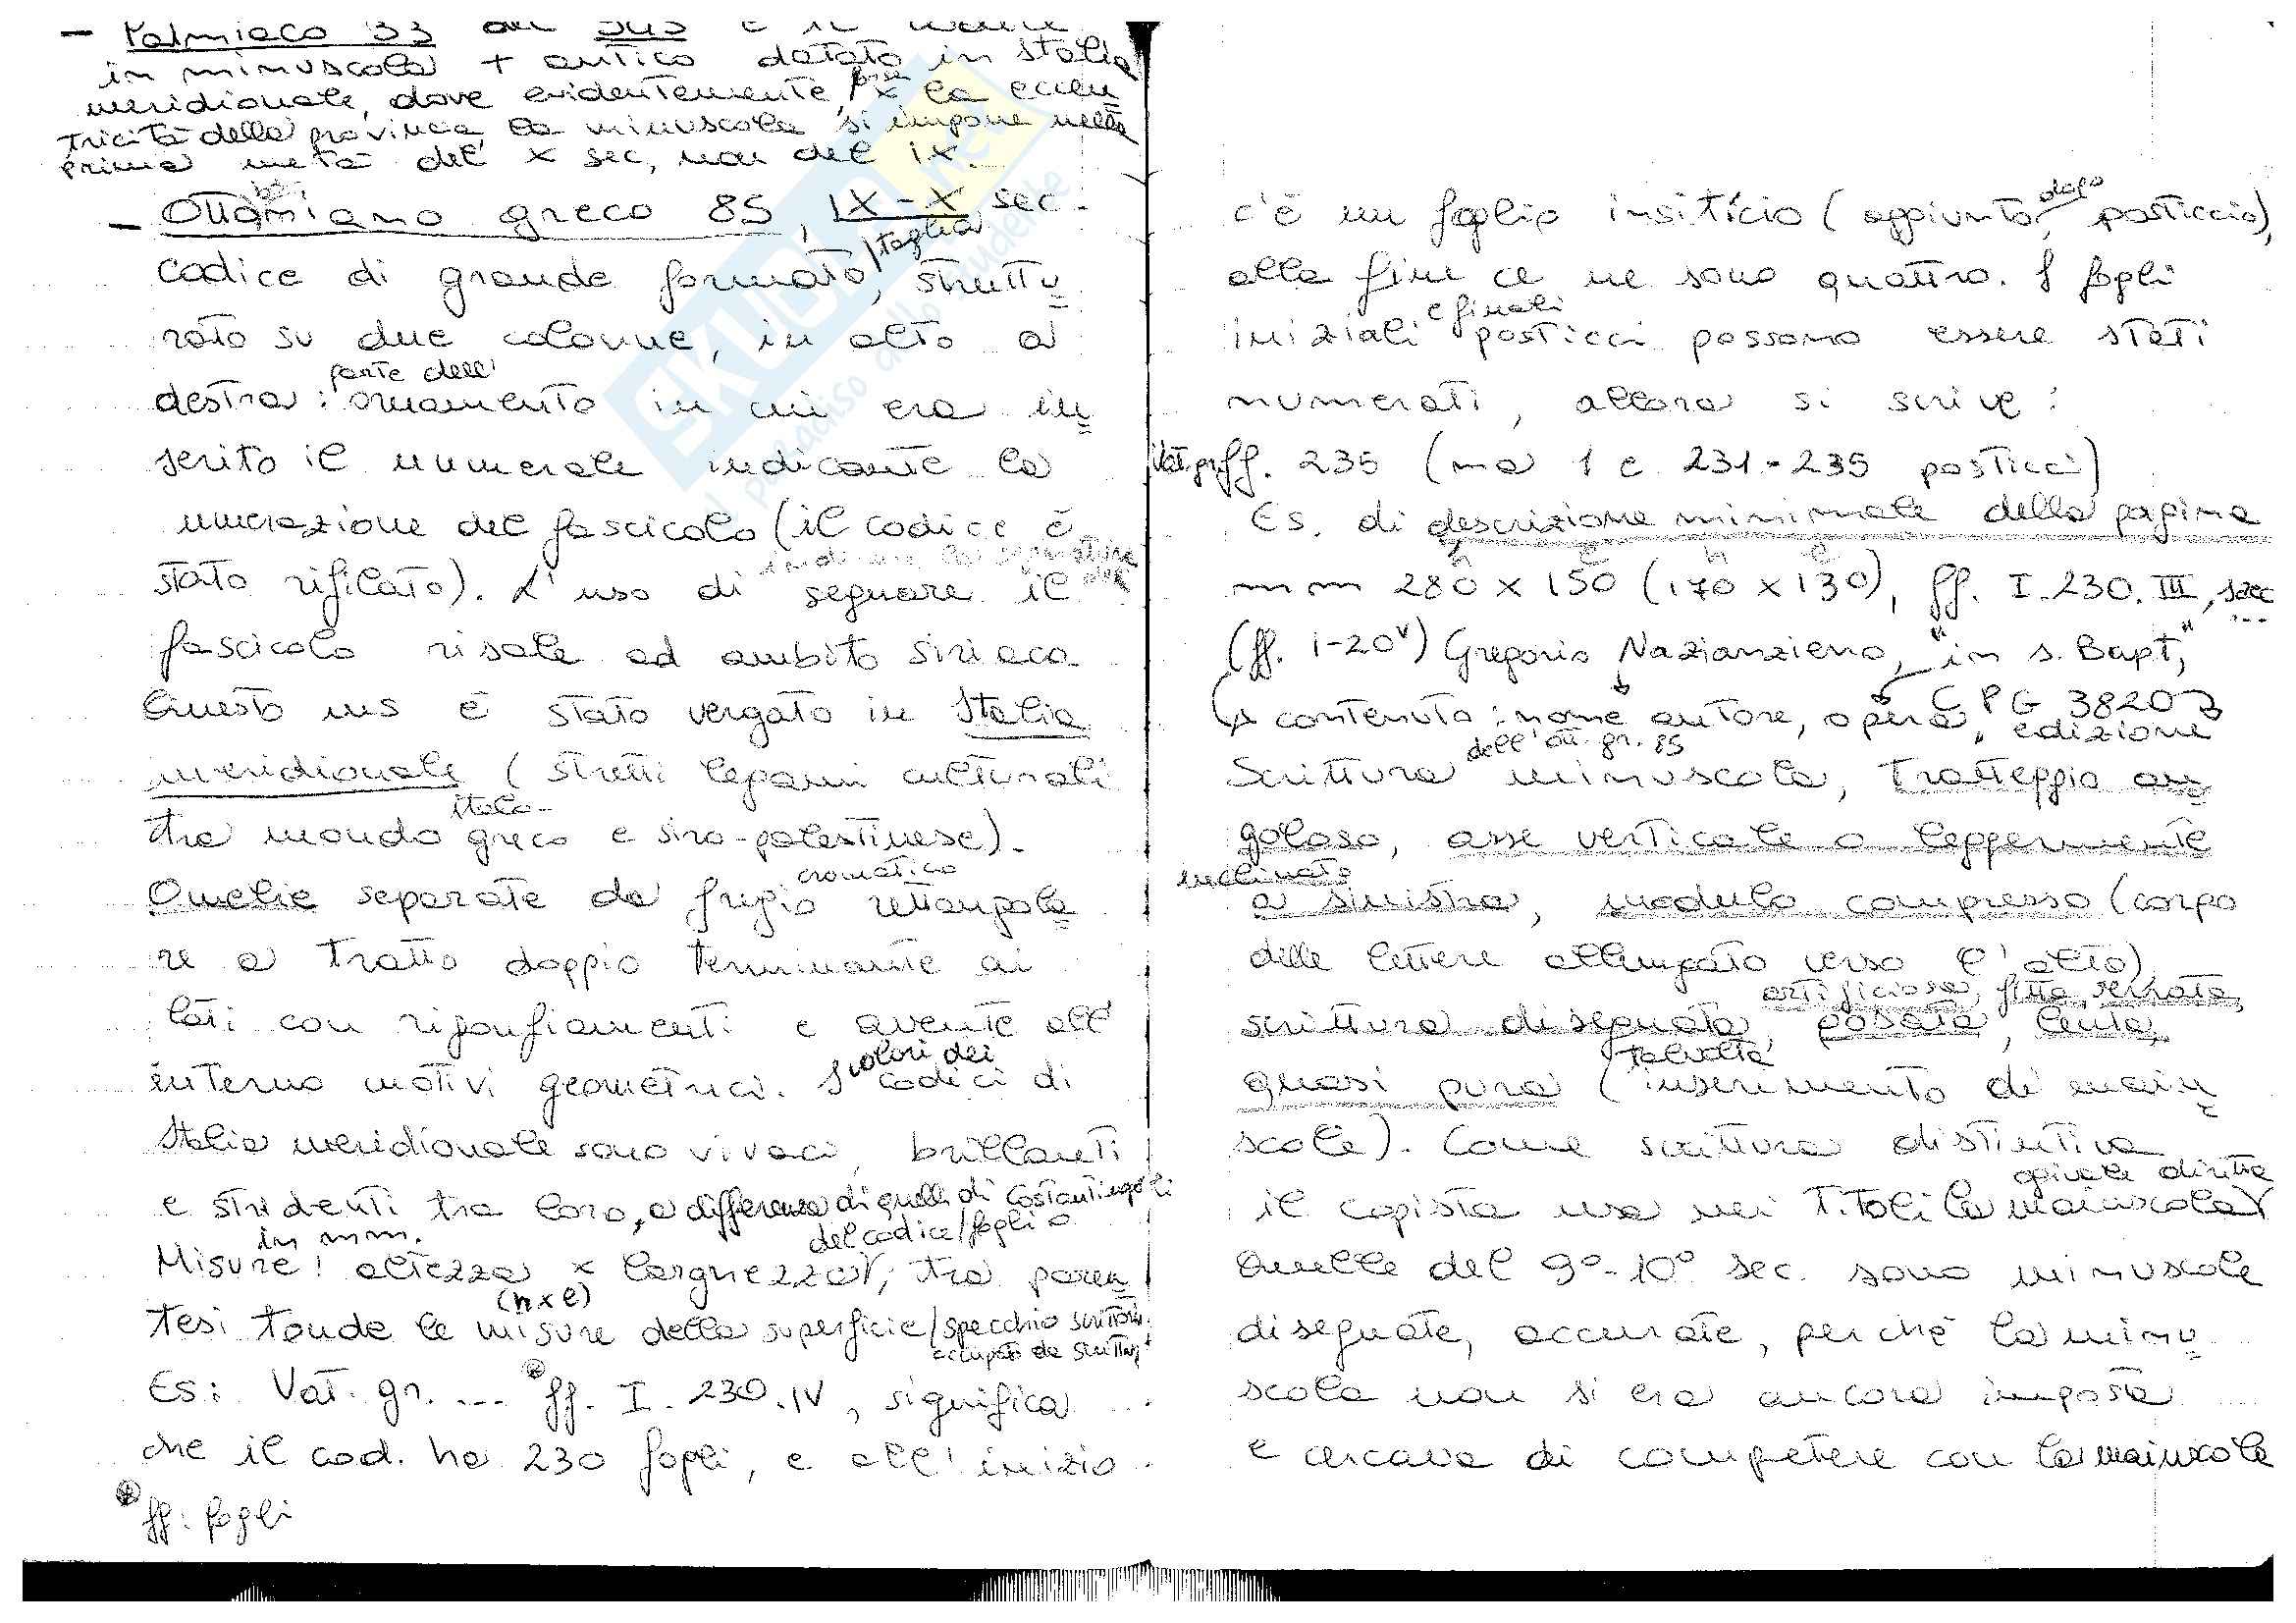 - Patmiaco 33 del 943 è il codice
in minuscola + antico datato in Italia
meridionale, dove evidentemente, forse x la eccen
tricità della provincia, la minuscola si impone nella
prima metà del X sec, non del IX.
- Ottoboniano greco 85, IX-X sec.
codice di grande formato/taglia, struttu
rato su due colonne, in alto a
destra: parte dell' ornamento in cui era in
serito il numerale indicante la
numerazione del fascicolo (il codice è
stato rifilato). L'uso di segnare il
indicare la segnatura del
fascicolo risale ad ambito siriaco
Questo ms è stato vergato in Italia
meridionale (stretti legami culturali
tra mondo italo-greco e siro-palestinese).
Omelie separate da fregio cromatico rettangola
re a tratto doppio terminante ai
lati con rigonfiamenti e avente all'
interno motivi geometrici. I colori dei codici di
Italia meridionale sono vivaci, brillanti
e stridenti tra loro, a differenza di quelli di Costantinopoli
Misure in mm: altezza x larghezza del codice/foglio; tra paren
(h x l)
tesi tonde le misure della superficie/specchio scrittorio
occupato da scrittura
Es: Vat. gr. ... ff. I. 230. IV, significa
che il cod. ha 230 fogli, e all'inizio
ff: fogli
c'è un foglio insitício (aggiunto dopo, posticcio),
alla fine ce ne sono quattro. I fogli
iniziali e finali posticci possono essere stati
numerati, allora si scrive:
Vat. gr. ff. 235 (ma 1 e 231-235 posticci)
Es. di descrizione minimale della pagina
h l h l
mm 280 x 150 (170 x 130), ff. I. 230. III, saec
...
(ff. 1-20v) Gregorio Nazianzieno, "in s. Bapt,"
CPG 3820
contenuto: nome autore, opera, edizione
Scrittura dell'Ott. gr. 85 minuscola, tratteggio an
goloso, asse verticale o leggermente
inclinato
a sinistra, modulo compresso (corpo
delle lettere allungato verso l'alto)
artificiosa, fitta, serrata,
scrittura disegnata, posata, lenta,
quasi pura (talvolta inserimento di maiu
scole). Come scrittura distintiva
il copista usa nei titoli la maiuscola ogivale diritta
Quelle del 9°-10° sec. sono minuscole
disegnate, accurate, perchè la minu
scola non si era ancora imposta
e cercava di competere con la maiuscola